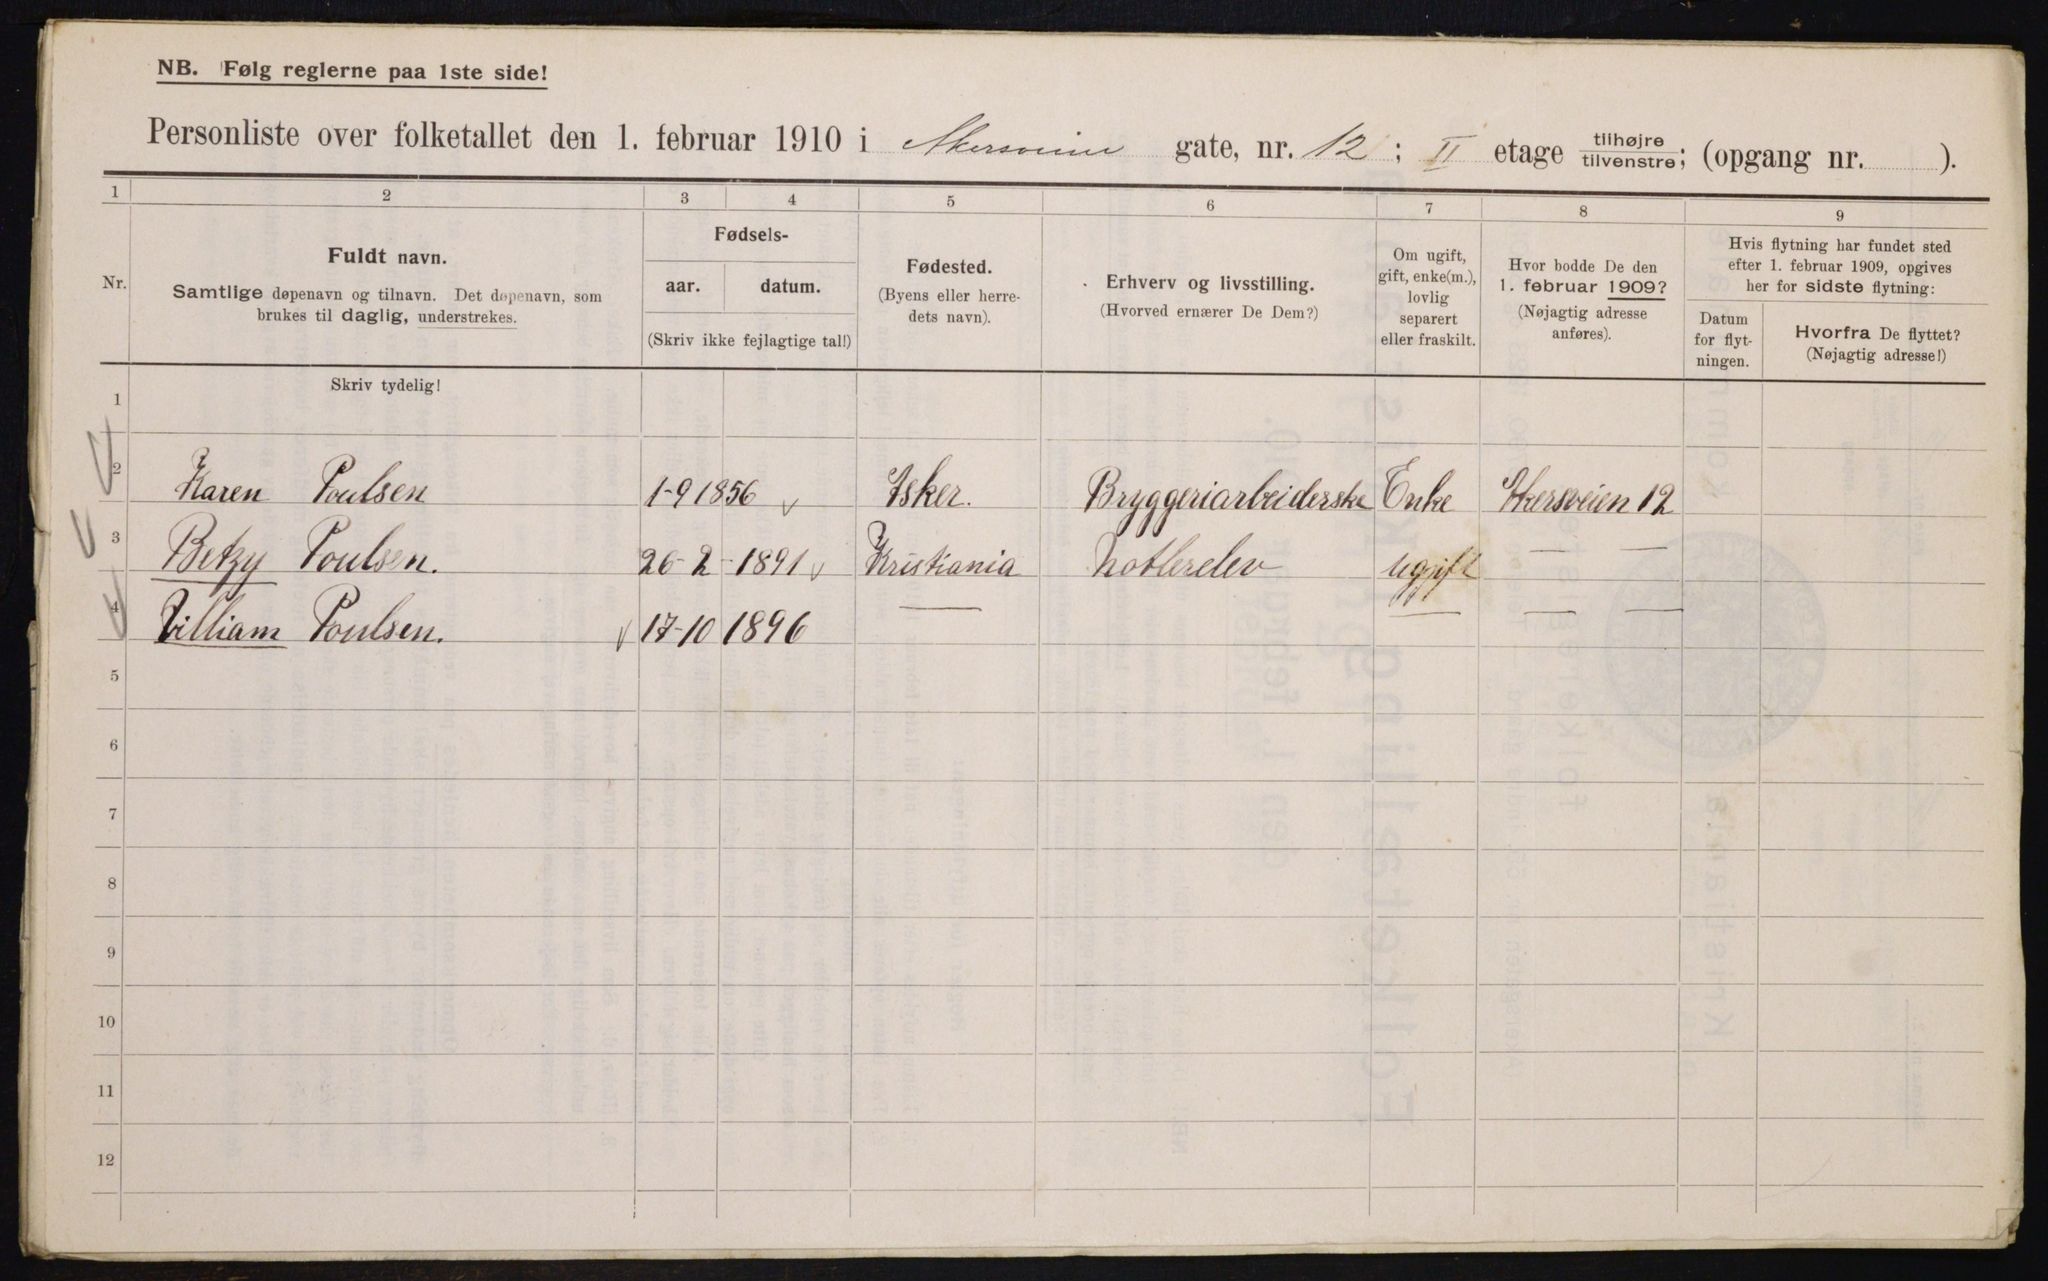 NB. Følg reglerne paa 1ste side!
Personliste over folketallet den 1. februar 1910 i Akersveien gate, nr. 12; II etage tilhøjre tilvenstre; (opgang nr. ).
1 2 3 4 5 6 7 8 9
Nr.
Fuldt navn.
Samtlige døpenavn og tilnavn. Det døpenavn, som
brukes til daglig, understrekes.
Skriv tydelig!
Fødsels-
aar. datum.
(Skriv ikke fejlagtige tal!)
Fødested.
(Byens eller herre-
dets navn).
Erhverv og livsstilling.
(Hvorved ernærer De Dem?)
Om ugift,
gift, enke(m.),
lovlig
separert
eller fraskilt.
Hvor bodde De den
1. februar 1909?
(Nøjagtig adresse
anføres).
Hvis flytning har fundet sted
efter 1. februar 1909, opgives
her for sidste flytning:
Datum
for flyt-
ningen.
Hvorfra De flyttet?
(Nøjagtig adresse!)
1
2 Karen Poulsen 1-9 1856 Asker. Bryggeriarbeiderske Enke Akersveien 12
3 Betzy Poulsen. 26-2-1891 Kristiania ugift — —
4 William Poulsen. 17-10 1896 — — — —
5
6
7
8
9
10
11
12